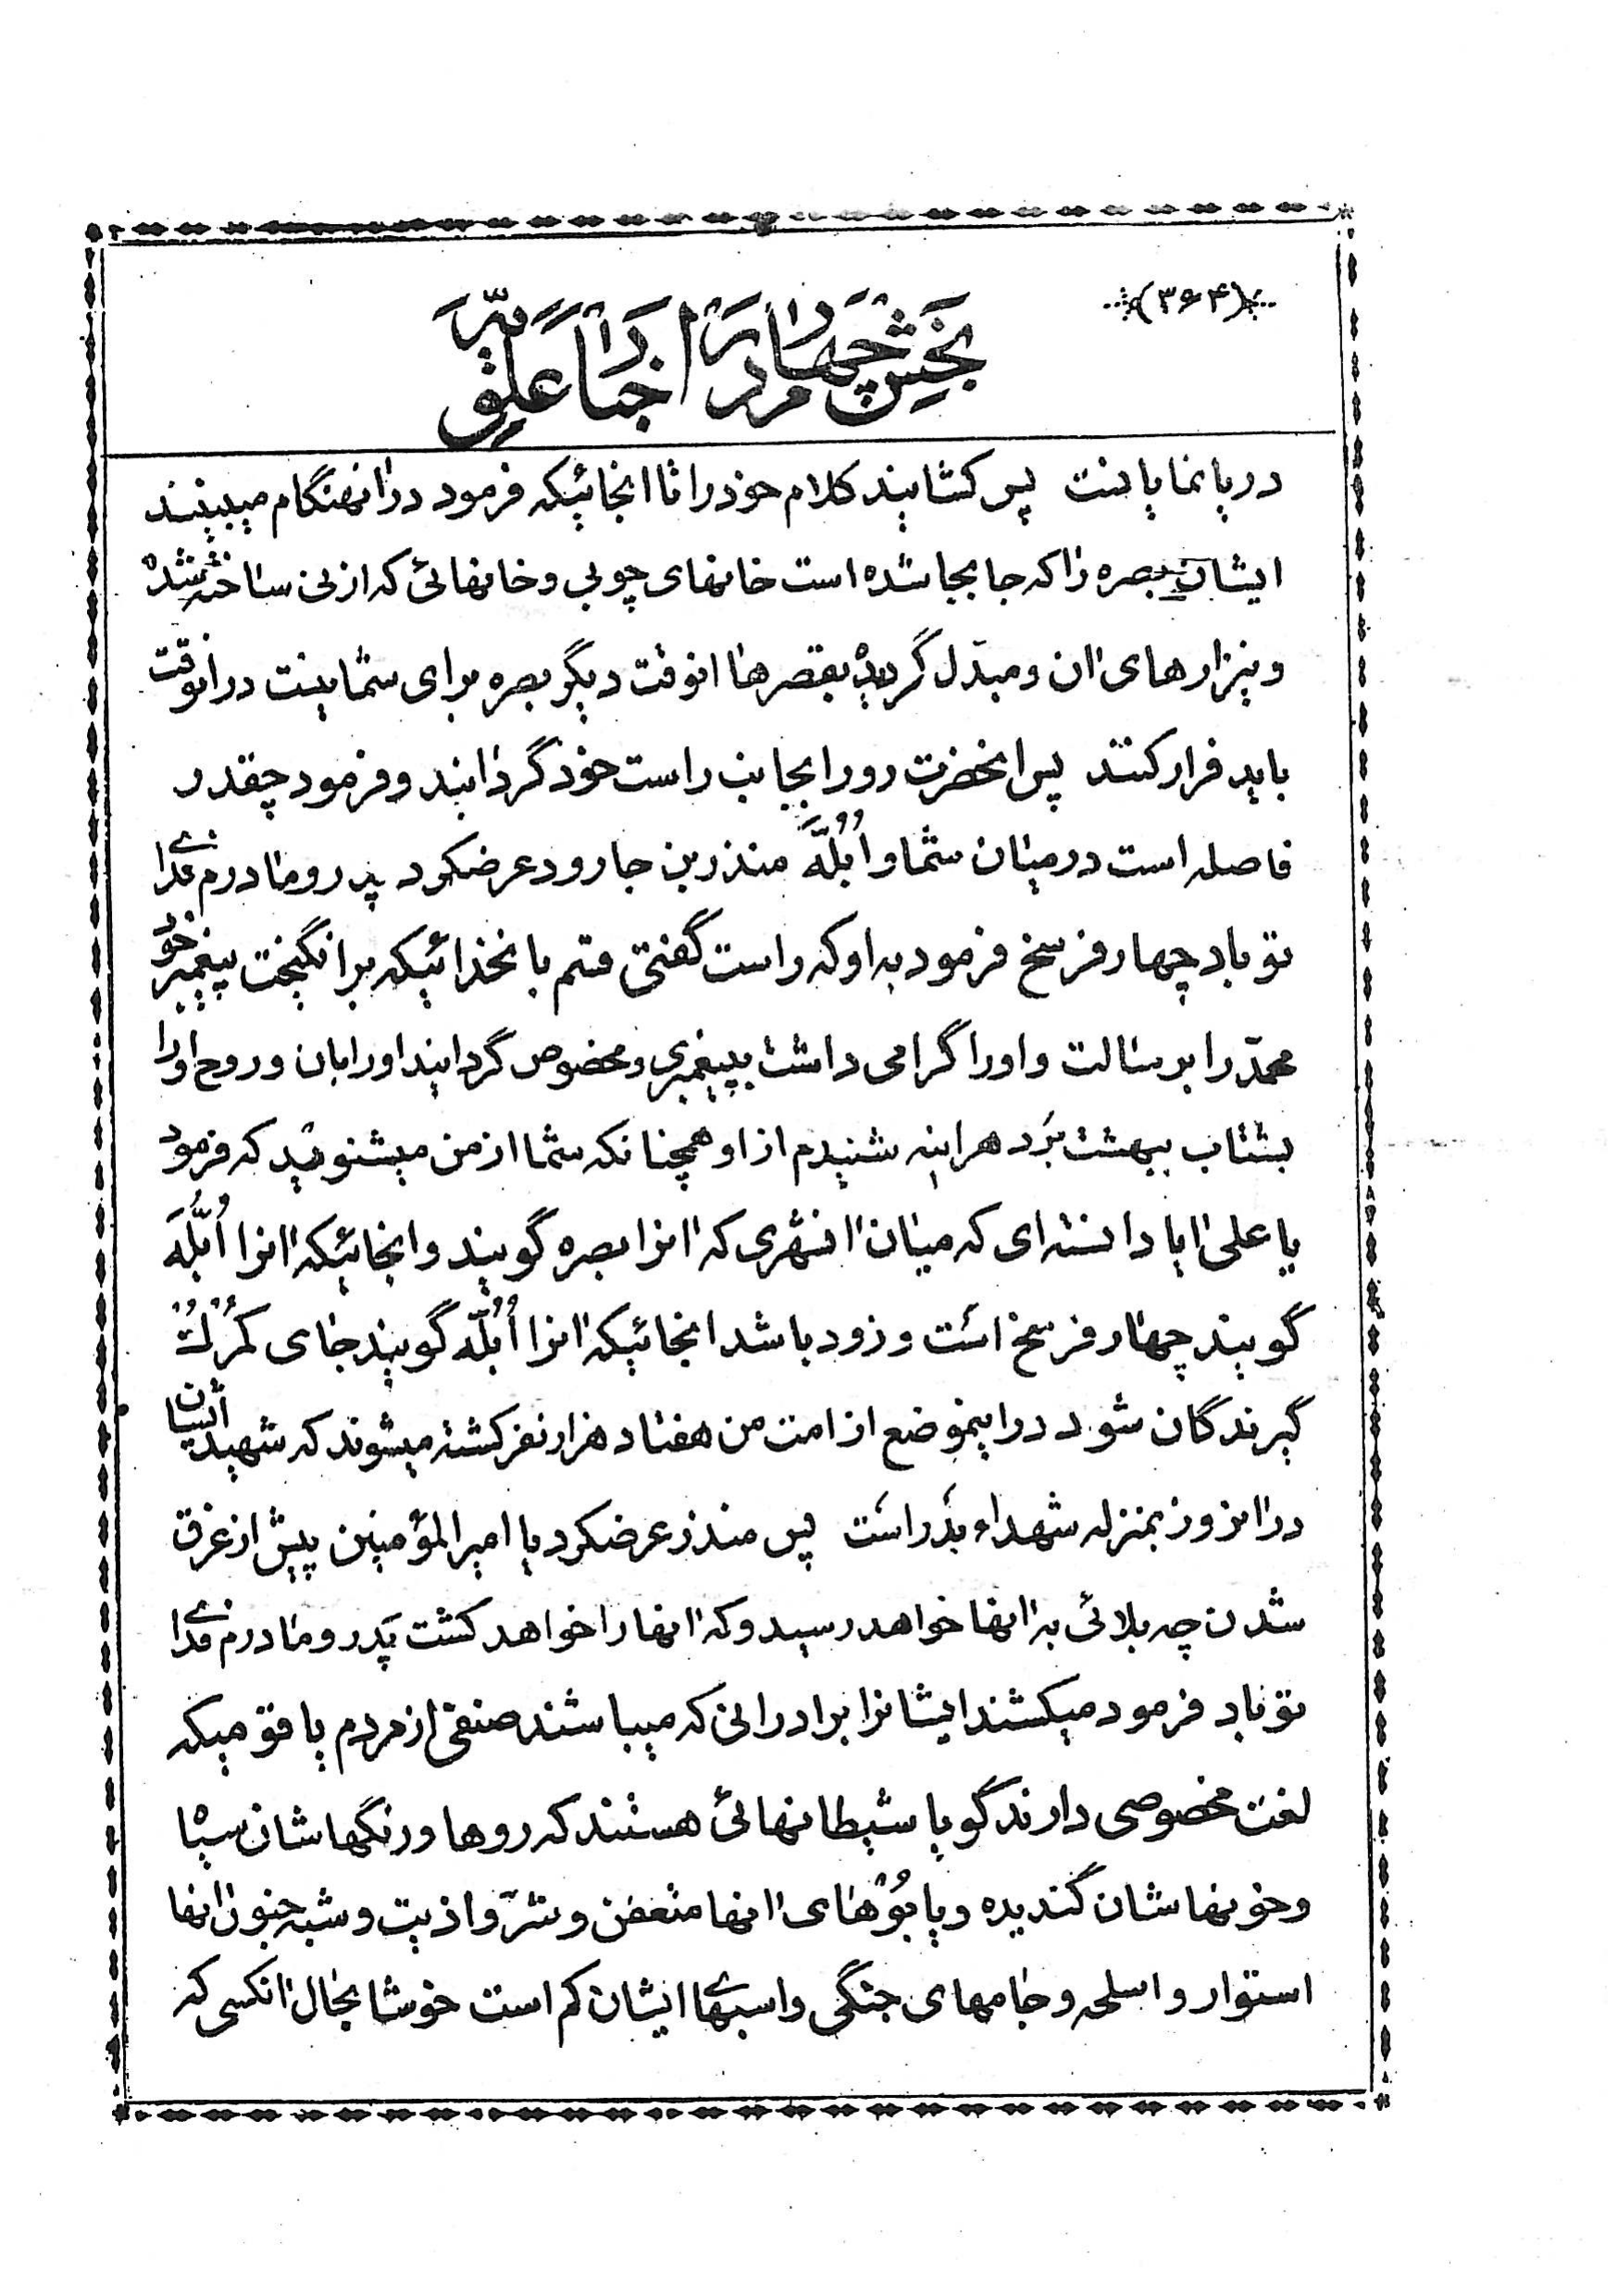 (۳۶۴)
بخش چهارم در اخبار علویه
در پانمایانست پس کشانید کلام خود را تا انجائیکه فرمود در انهنگام میبینند
ایشان بصره را که جابجا شده است خانهای چوبی و خانهائی که از نی ساخته شده
و نیزارهای ان و مبدّل گردیده بقصرها انوقت دیگر بصره برای شما نیست در انوقت
باید فرار کنند پس انحضرت رو را بجانب راست خود گردانید و فرمود چقدر
فاصله است در میان شما و اُبُلَّه منذر بن جارود عرضکرد پدر و مادرم فدای
تو باد چهار فرسخ فرمود به او که راست گفتی قسم بانخدائیکه برانگیخت پیغمبر خود
محمّد را برسالت و او را گرامی داشت بپیغمبری و مخصوص گردانید او را بان و روح او را
بشتاب ببهشت برد هراینه شنیدم از او همچنانکه شما از من میشنوید که فرمود
یا علی ایا دانسته‌ای که میان انشهری که انرا بصره گویند و انجائیکه انرا اُبُلَّه
گویند چهار فرسخ است و زود باشد انجائیکه انرا اُبُلّه گویند جای گمرک
گیرندگان شود در اینموضع از امت من هفتاد هزار نفر کشته میشوند که شهید ایشان
در انروز بمنزله شهداء بَدر است پس منذر عرضکرد یا امیرالمؤمنین پیش از غرق
شدن چه بلائی به انها خواهد رسید و که انها را خواهد کشت پدر و مادرم فدای
تو باد فرمود میکشند ایشانرا برادرانی که میباشند صنفی از مردم یا قومیکه
لغت مخصوصی دارند گویا شیطانهائی هستند که روها و رنگهاشان سیاه
و خونهاشان گندیده و یا بُوهای انها متعفن و شرّ و اذیت و شبه جنون انها
استوار و اسلحه و جامهای جنگی و اسبهای ایشان کم است خوشا بحال انکسی که